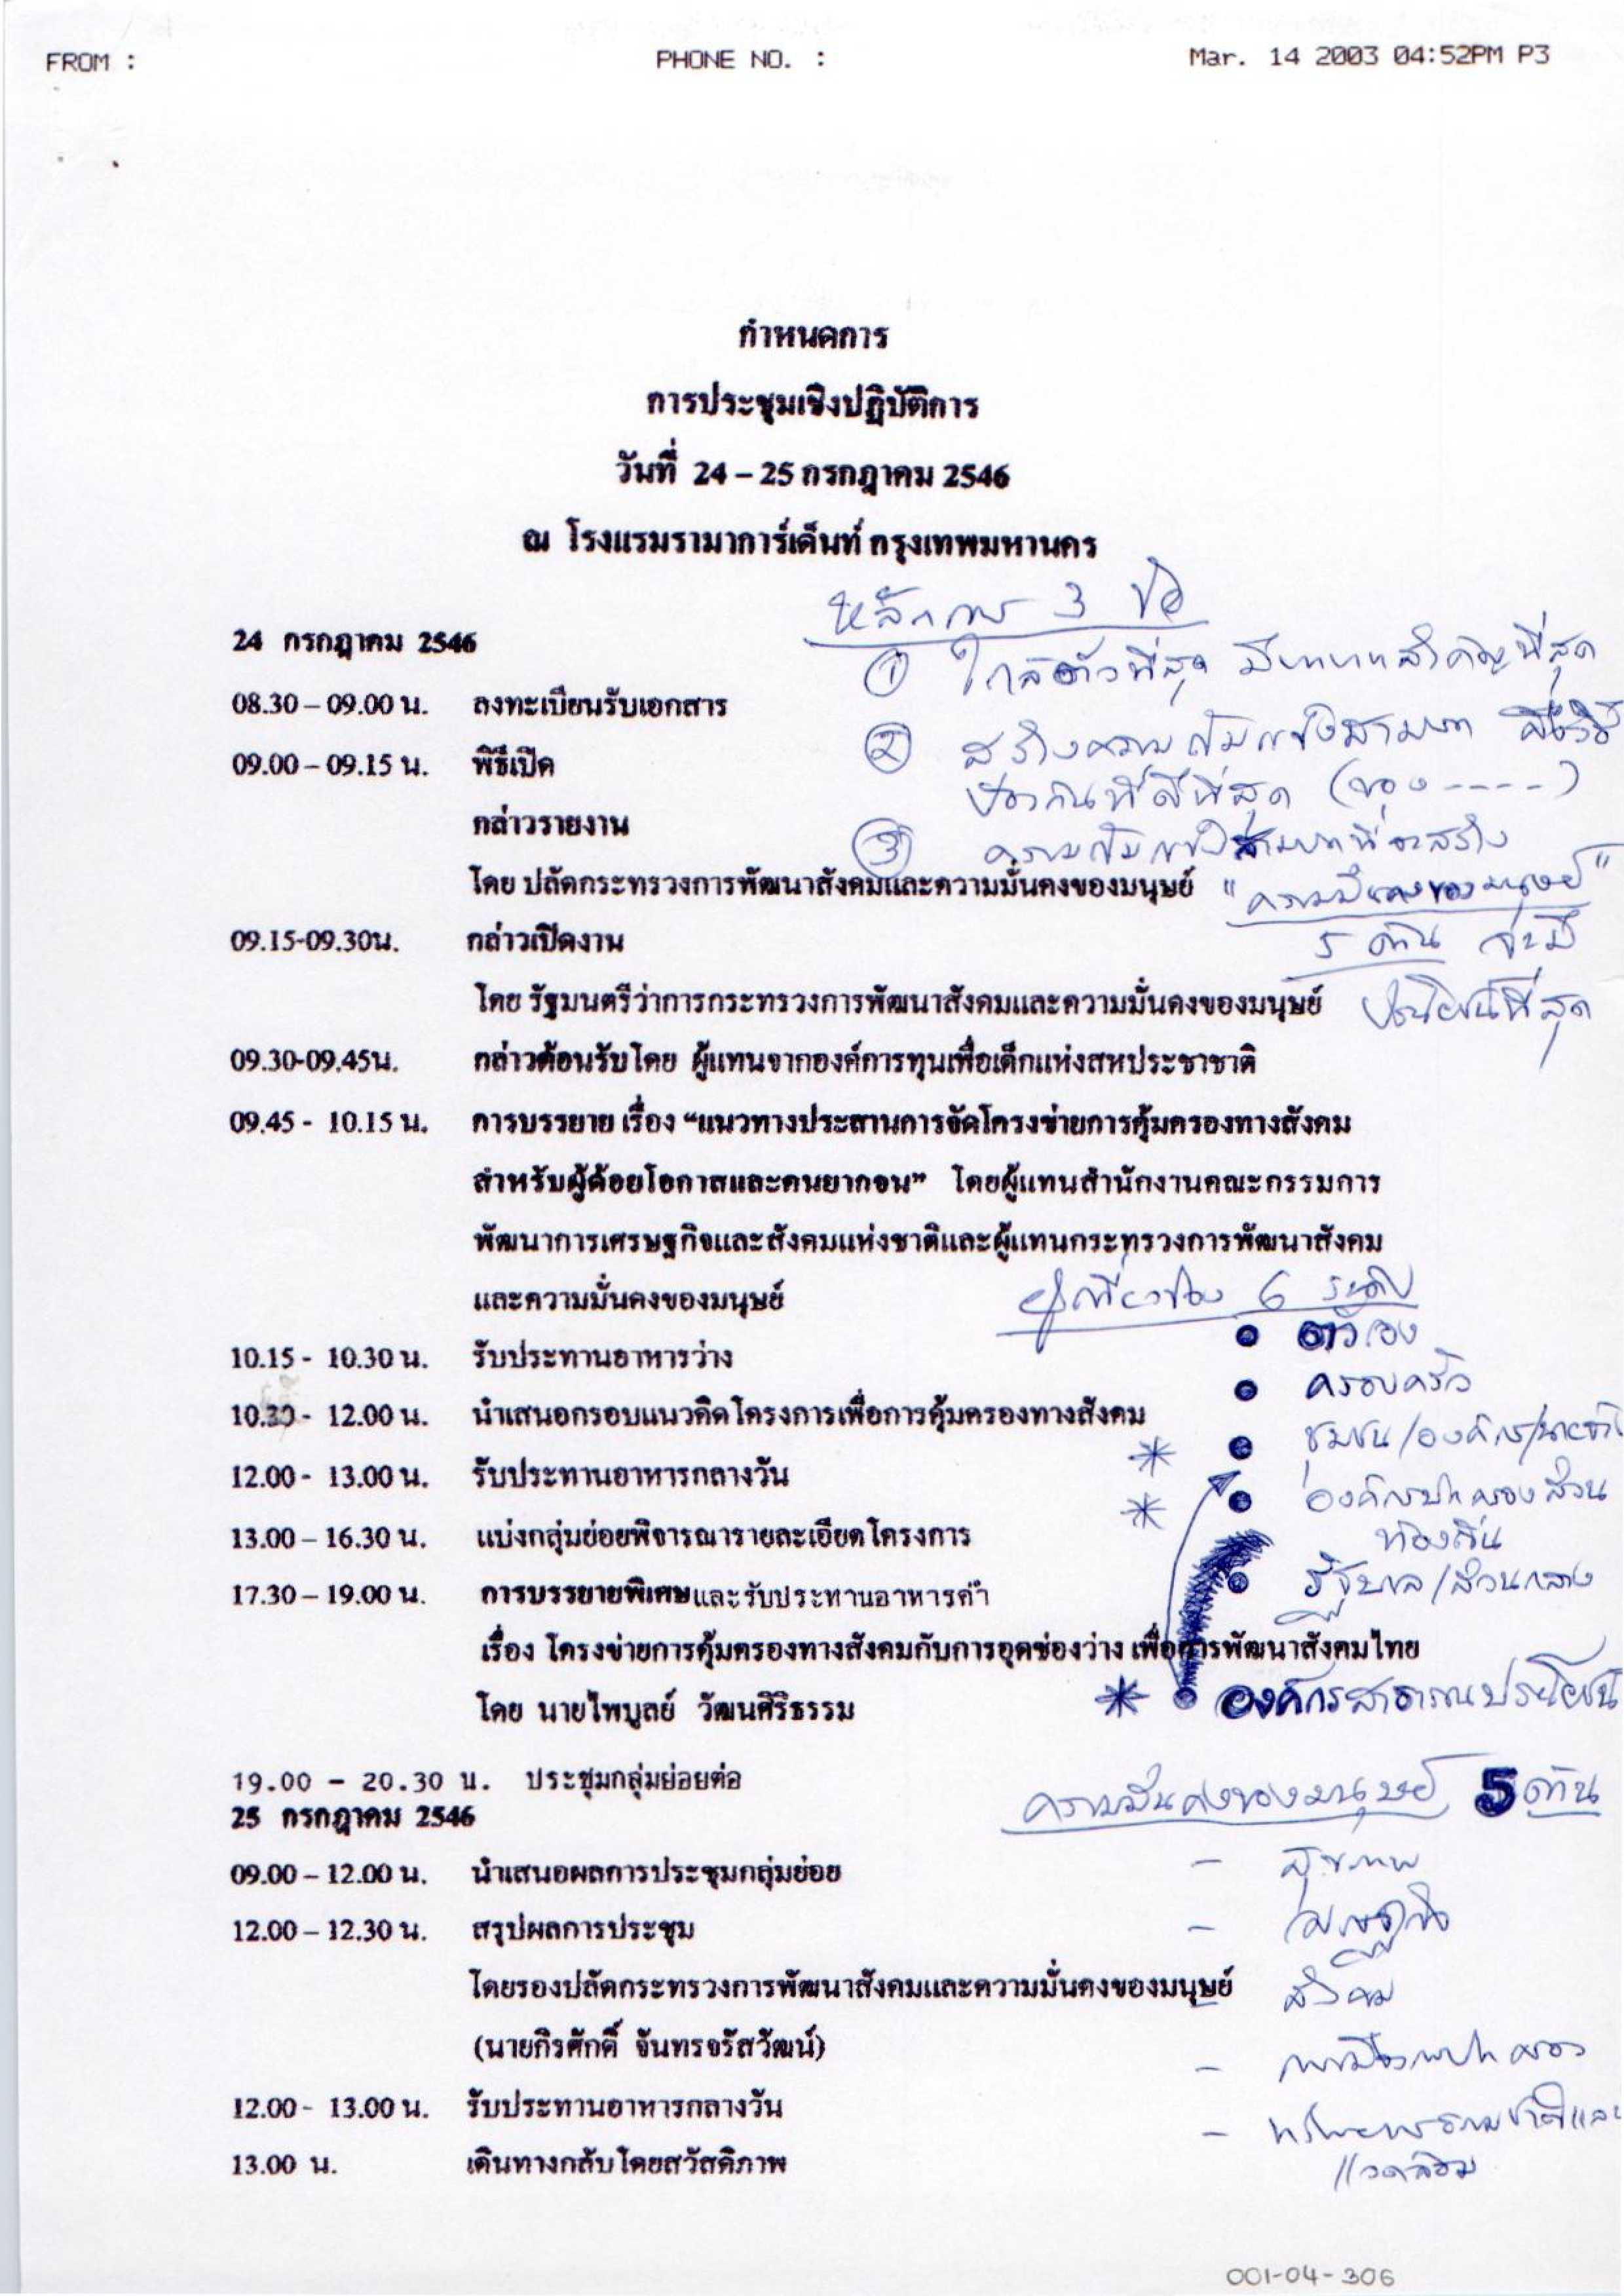 FROM :
PHONE NO. :
Mar. 14 2003 04:52PM P3
กำหนดการ
การประชุมเชิงปฏิบัติการ
วันที่ 24 – 25 กรกฎาคม 2546
ณ โรงแรมรามาการ์เด็นท์ กรุงเทพมหานคร
หลักการ 3 ข้อ
24 กรกฎาคม 2546
① ใกล้ตัวที่สุด มีบทบาทสำคัญที่สุด
08.30 – 09.00 น. ลงทะเบียนรับเอกสาร
② สร้างความเข้มแข็งสามารถ คือวิธี
09.00 – 09.15 น. พิธีเปิด
ป้องกันที่ดีที่สุด (ของ ----)
กล่าวรายงาน
③ ความเข้มแข็งสามารถที่จะสร้าง
โดย ปลัดกระทรวงการพัฒนาสังคมและความมั่นคงของมนุษย์
"ความมั่นคงของมนุษย์"
09.15-09.30น. กล่าวเปิดงาน
5 ด้าน จะมี
โดย รัฐมนตรีว่าการกระทรวงการพัฒนาสังคมและความมั่นคงของมนุษย์
ประโยชน์ที่สุด
09.30-09.45น. กล่าวต้อนรับโดย ผู้แทนจากองค์การทุนเพื่อเด็กแห่งสหประชาชาติ
09.45 - 10.15 น. การบรรยาย เรื่อง “แนวทางประสานการจัดโครงข่ายการคุ้มครองทางสังคม
สำหรับผู้ด้อยโอกาสและคนยากจน” โดยผู้แทนสำนักงานคณะกรรมการ
พัฒนาการเศรษฐกิจและสังคมแห่งชาติและผู้แทนกระทรวงการพัฒนาสังคม
และความมั่นคงของมนุษย์
ผู้เกี่ยวข้อง 6 ระดับ
ตัวเอง
10.15 - 10.30 น. รับประทานอาหารว่าง
ครอบครัว
10.30 - 12.00 น. นำเสนอกรอบแนวคิดโครงการเพื่อการคุ้มครองทางสังคม
* ชุมชน/องค์กร/
12.00 - 13.00 น. รับประทานอาหารกลางวัน
* องค์กรปกครองส่วน
ท้องถิ่น
13.00 – 16.30 น. แบ่งกลุ่มย่อยพิจารณารายละเอียดโครงการ
รัฐบาล/ส่วนกลาง
17.30 – 19.00 น. การบรรยายพิเศษและรับประทานอาหารค่ำ
เรื่อง โครงข่ายการคุ้มครองทางสังคมกับการอุดช่องว่าง เพื่อการพัฒนาสังคมไทย
* องค์กรสาธารณประโยชน์
โดย นายไพบูลย์ วัฒนศิริธรรม
19.00 – 20.30 น. ประชุมกลุ่มย่อยต่อ
ความมั่นคงของมนุษย์ 5 ด้าน
25 กรกฎาคม 2546
- สุขภาพ
09.00 – 12.00 น. นำเสนอผลการประชุมกลุ่มย่อย
- เศรษฐกิจ
12.00 – 12.30 น. สรุปผลการประชุม
โดยรองปลัดกระทรวงการพัฒนาสังคมและความมั่นคงของมนุษย์
- สังคม
(นายกิรศักดิ์ จันทรจรัสวัฒน์)
- การเมืองการปกครอง
12.00 - 13.00 น. รับประทานอาหารกลางวัน
- ทรัพยากรธรรมชาติและ
แวดล้อม
13.00 น. เดินทางกลับโดยสวัสดิภาพ
001-04-306